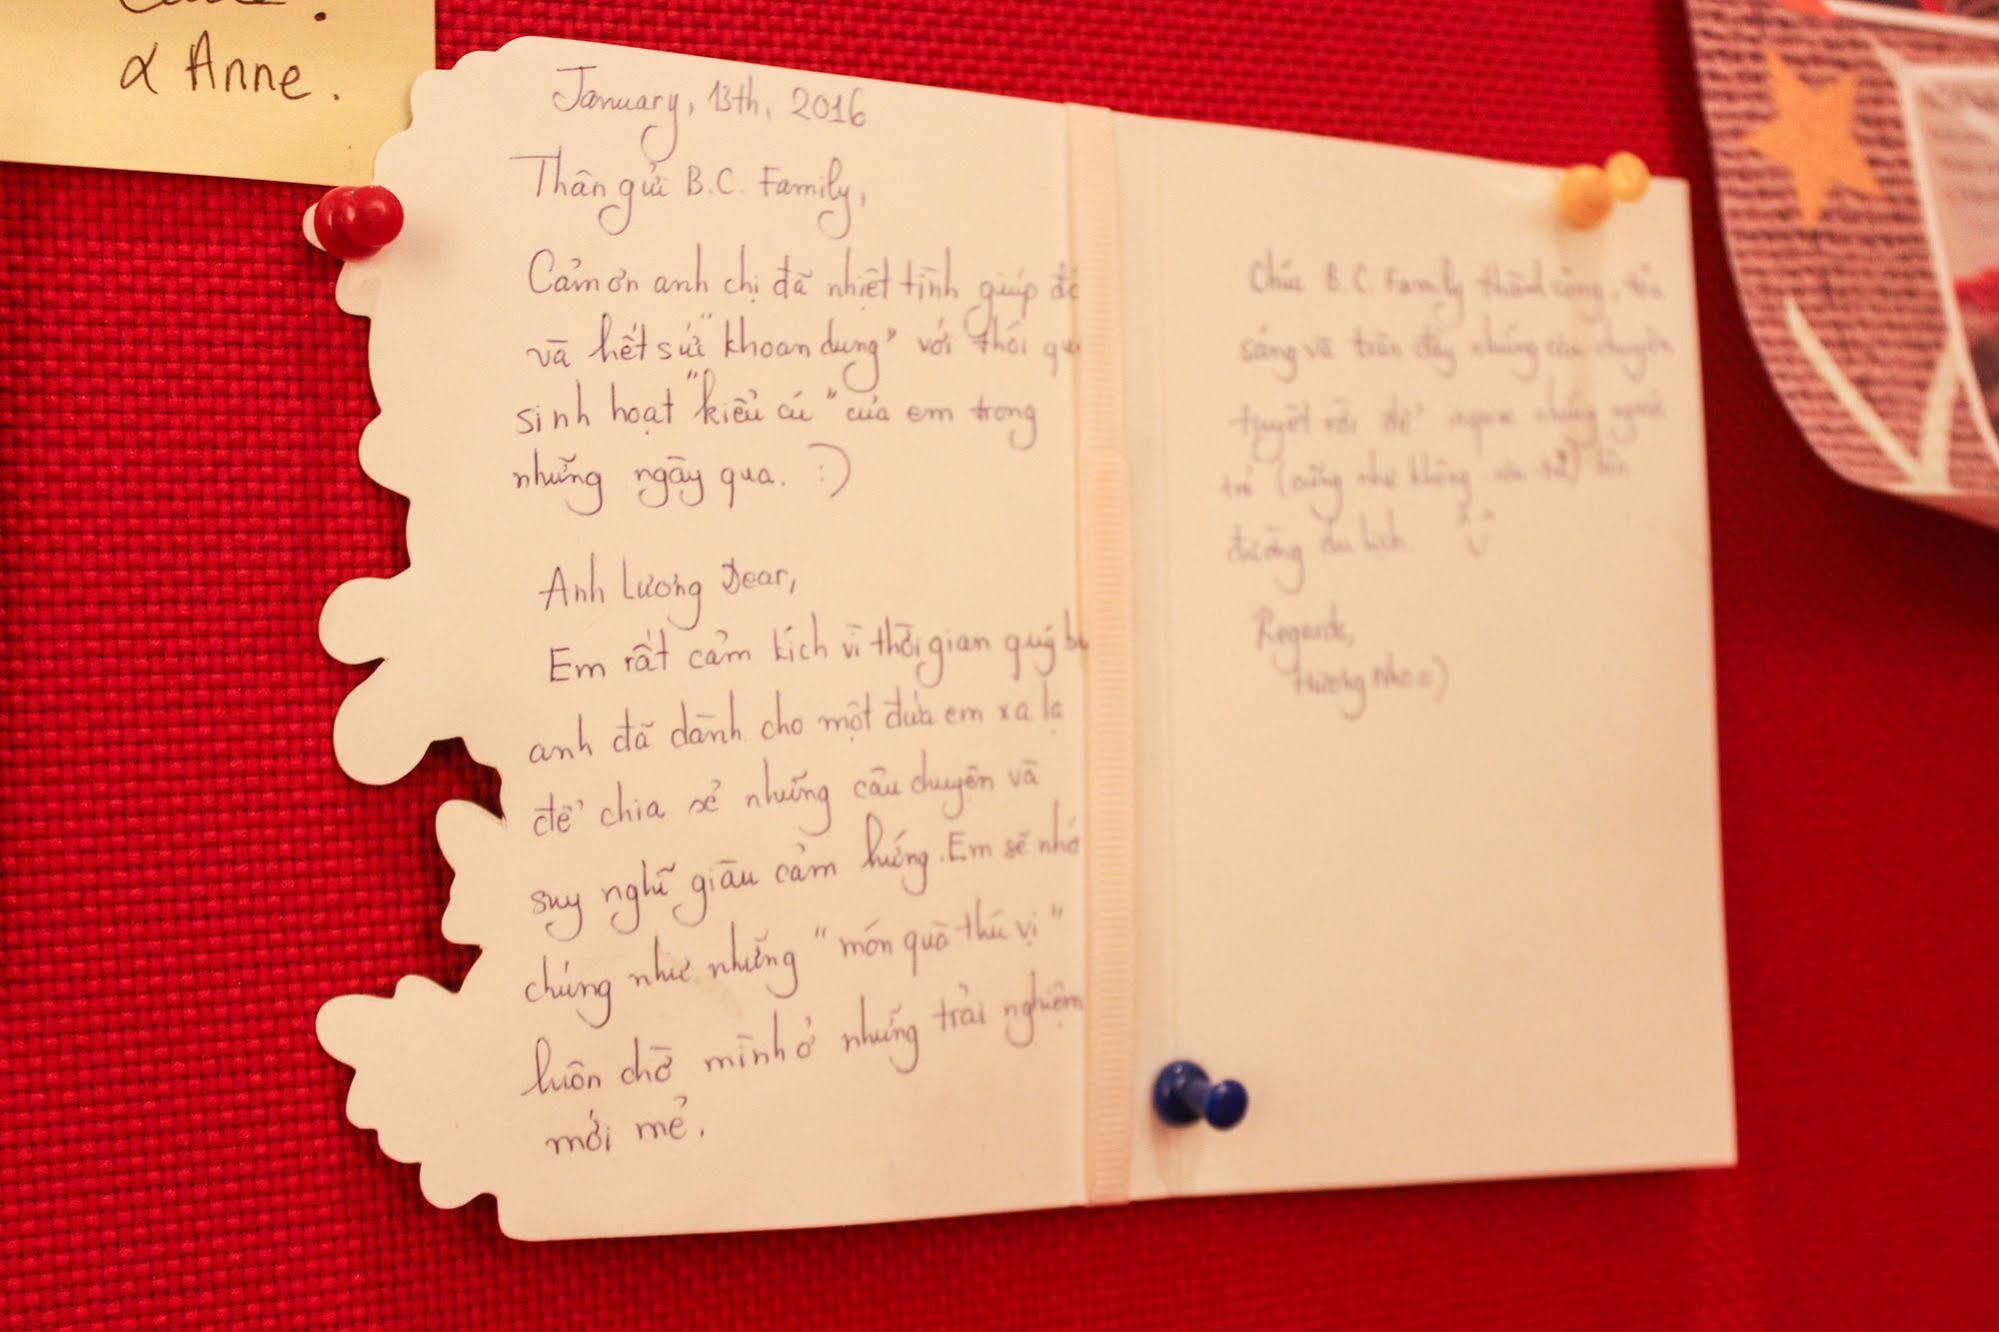 & Anne.
January, 13th, 2016
Thân gửi B.C. Family,
Cảm ơn anh chị đã nhiệt tình giúp đỡ
và hết sức "khoan dung" với thói
sinh hoạt "kiểu cú" của em trong
những ngày qua. :)
Anh Lương Dear,
Em rất cảm kích vì thời gian quý
anh đã dành cho một đứa em xa lạ
để chia sẻ những câu chuyện và
suy nghĩ giàu cảm hứng. Em sẽ nhớ
chúng như những "món quà thú vị"
luôn chờ mình ở những trải nghiệm
mới mẻ.
Chúc B.C. Family thành công,
sáng và tràn đầy những câu chuyện
tuyệt vời để những người
trẻ (cũng như không còn trẻ) lên
đường du lịch.
Regards,